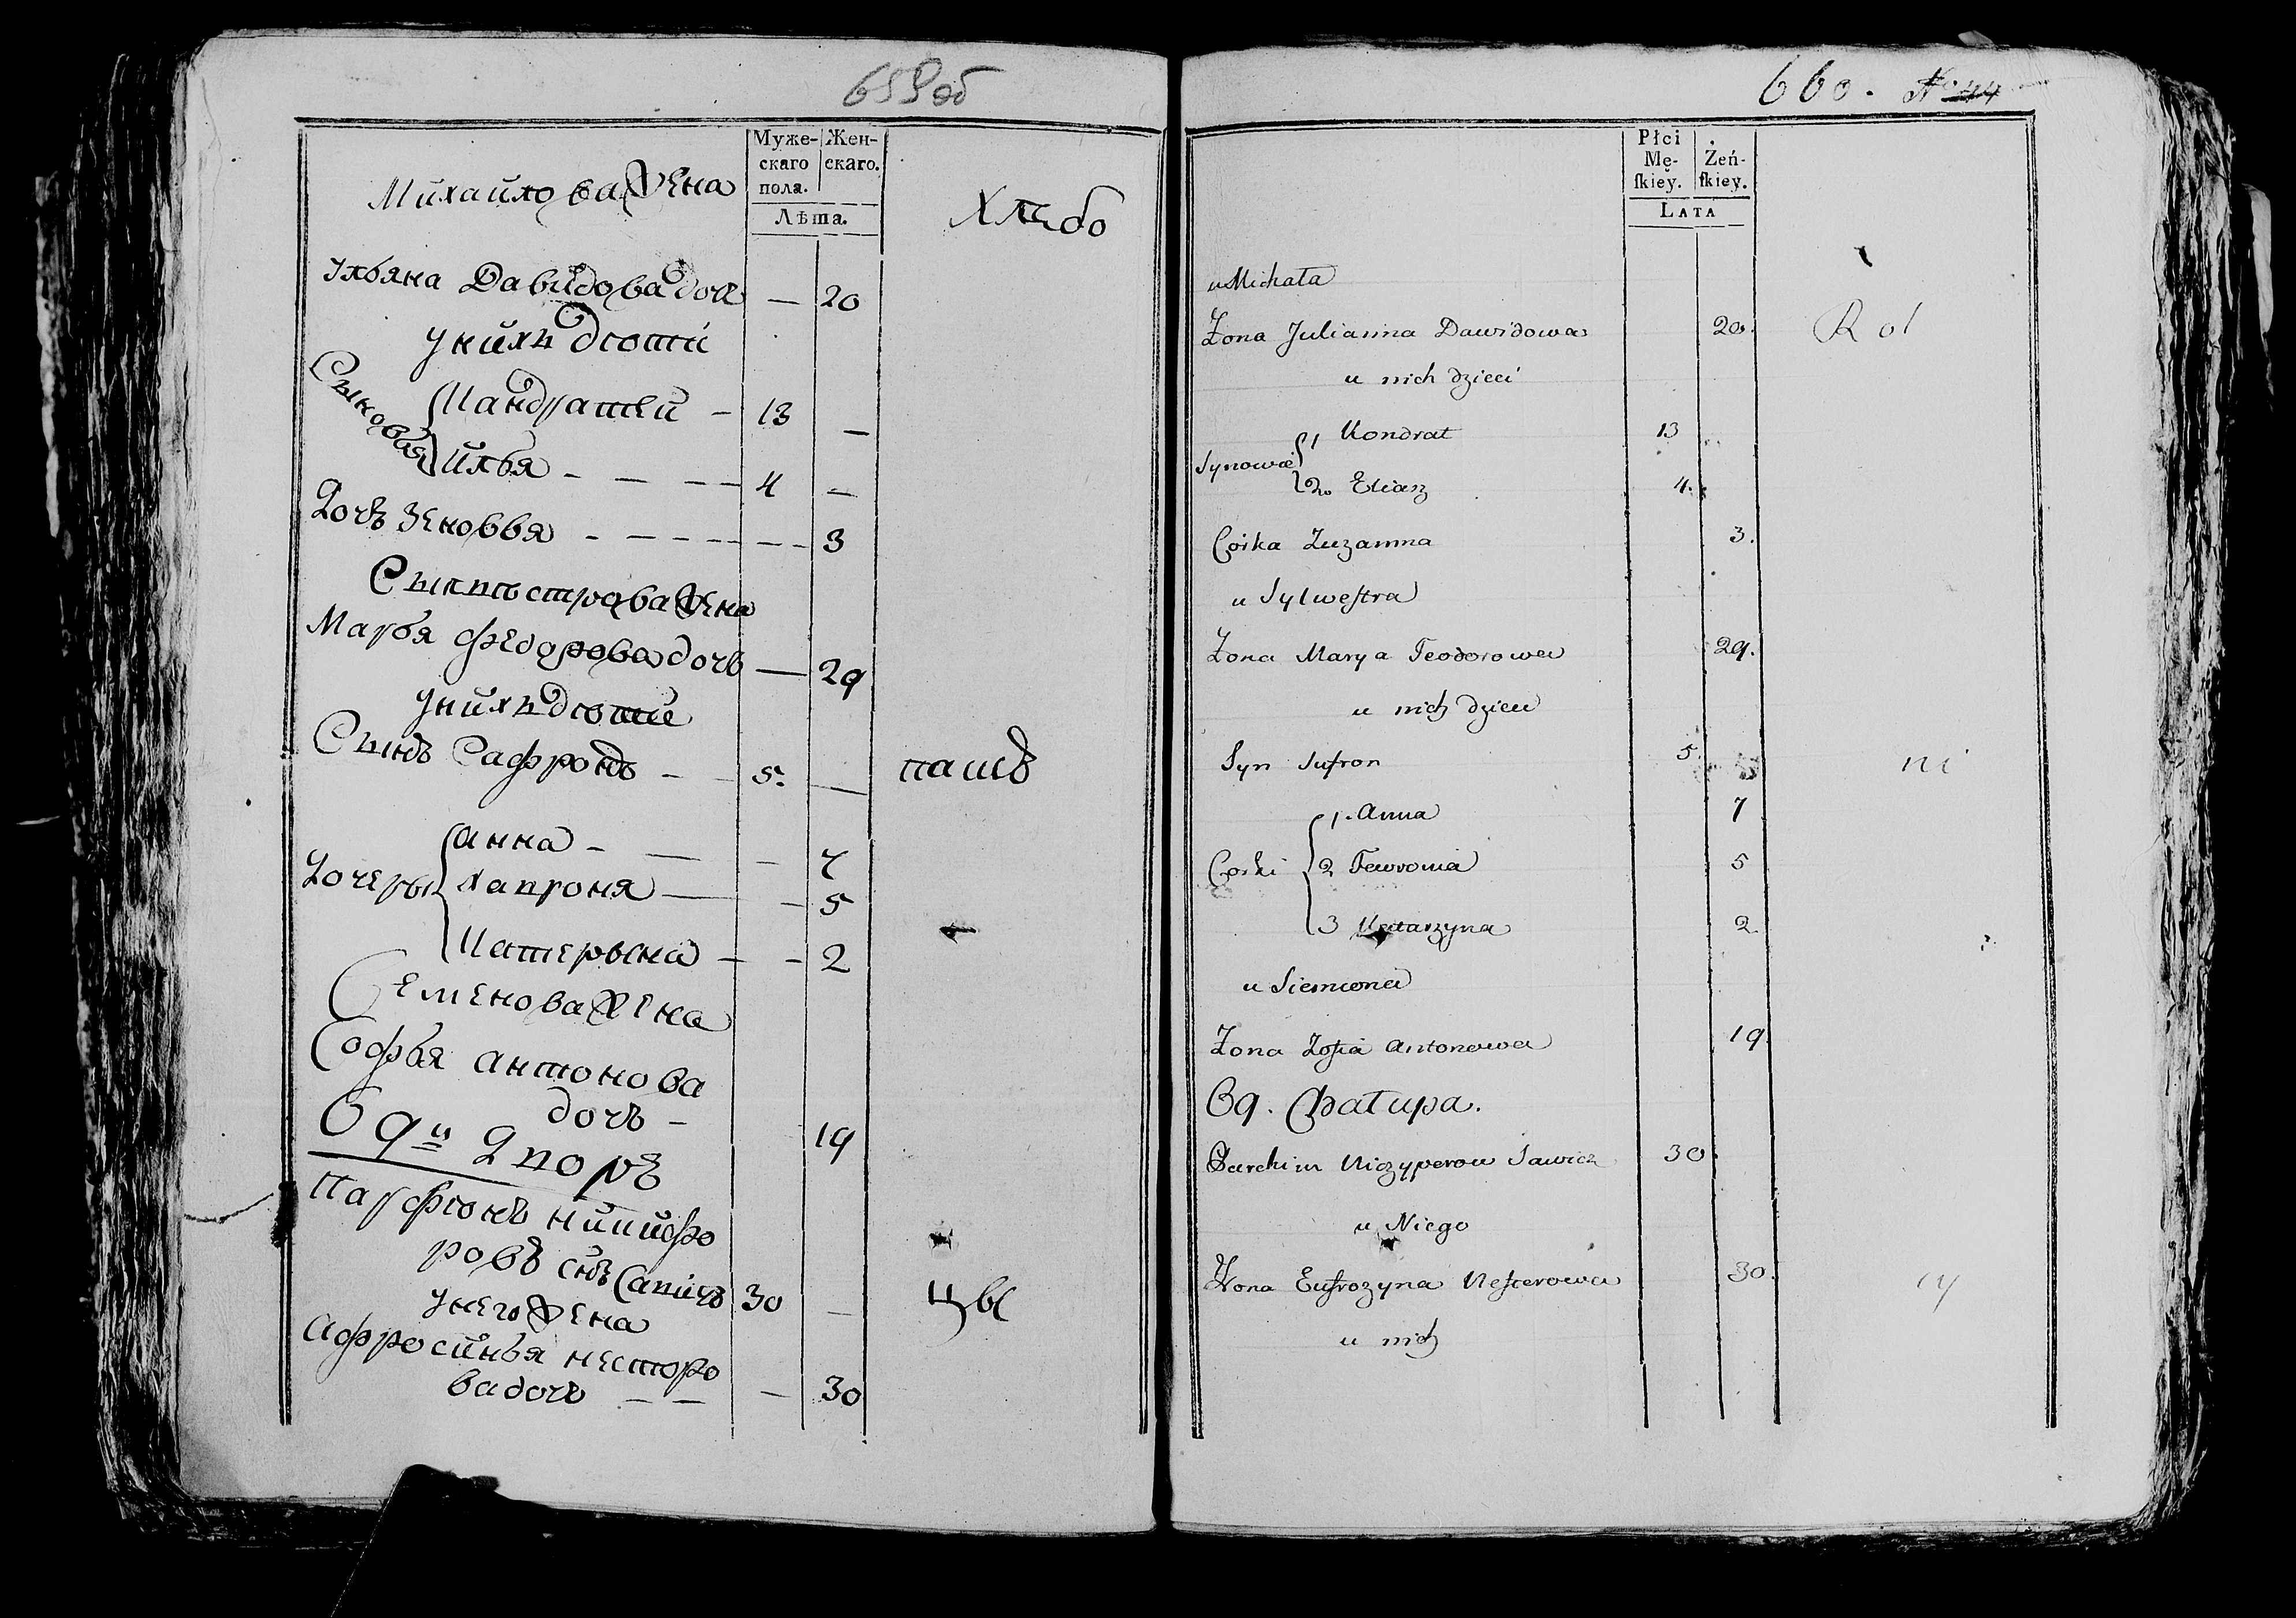 659 об
Муже-
скаго
пола.
Жен-
скаго.
Лѣта.
Михайлова жена
Хлѣбо
Ульяна Давидова доч — 20
у нихъ дѣти
Сыновья
Кандратей — 13 —
Илья - — — — 4 —
Дочь Зеновья - — — — 3
Сылвестрова жена
Марья Федорова дочь — 29
у нихъ дѣти
Сынъ Сафронъ — 5. —
паш
Дочеры
Анна - — — 7
Хапроня — — 5
Катерына — — 2
Семенова жена
Софья Антонова
дочь — 19
Парфіонъ Никифо
ровъ снъ Савичъ 30 —
у него жена
цы
Афросинья Несторо
ва дочь — — — 30
660. No 44
Płci
Mę-
ſkiey.
Żeń-
ſkiey.
LATA
u Michała
Żona Julianna Dawidowa 20.
Rol
u nich dzieci
Synowie
1 Kondrat 13
2. Eliasz 4.
Corka Zuzanna 3.
u Sylweſtra
Żona Marya Teodorowa 29.
u nich dzieci
Syn Sufron 5.
ni
Corki
1. Anna 7
2 Fewronia 5
3 Katarzyna 2
u Siemiona
Żona Zofia Antonowa 19.
Parchim Niczyperow Sawicz 30.
u Niego
Żona Eufrozyna Neſterowa 30.
cy
u nich